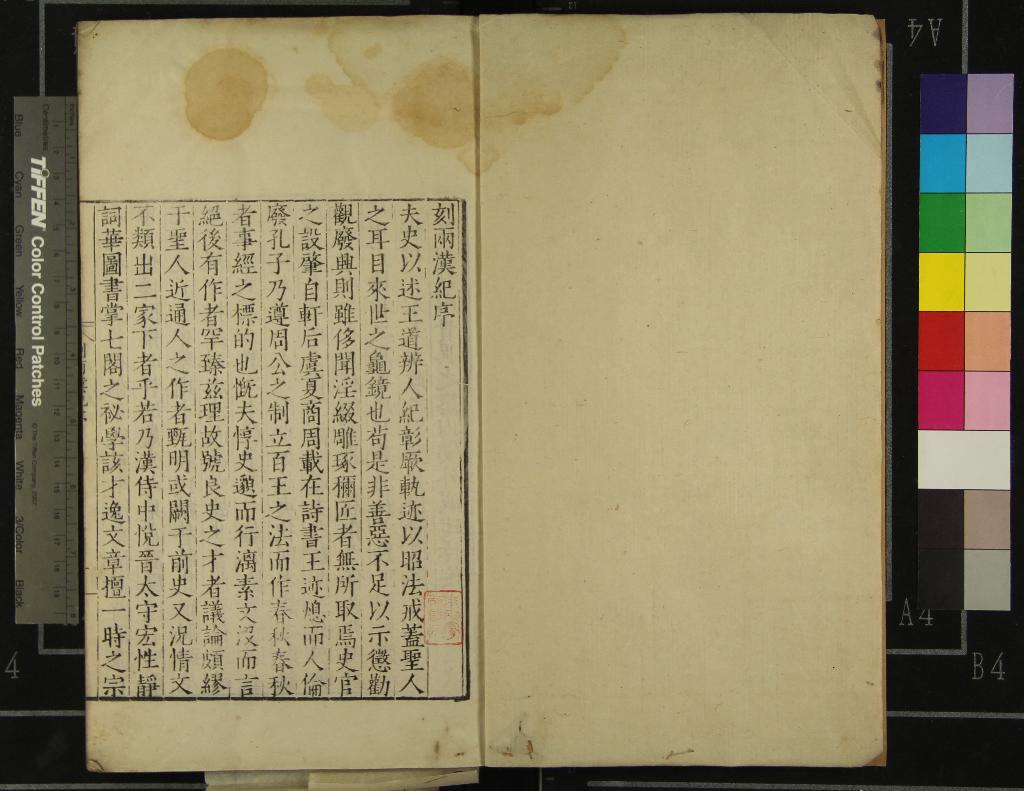 刻兩漢紀序
夫史以述王道辨人紀彰厥軌迹以昭法戒蓋聖人
之耳目來世之龜鏡也苟是非善惡不足以示懲勸
觀廢興則雖侈聞淫綴雕琢稱匠者無所取焉史官
之設肇自軒后虞夏商周載在詩書王迹熄而人倫
廢孔子乃遵周公之制立百王之法而作春秋春秋
者事經之標的也慨夫惇史邈而行漓素文沒而言
絕後有作者罕臻茲理故號良史之才者議論頗繆
于聖人近通人之作者甄明或闕于前史又況情文
不類出二家下者乎若乃漢侍中悅晉太守宏性靜
詞華圖書掌七閣之祕學該才逸文章擅一時之宗
TIFFEN Color Control Patches
© The Tiffen Company, 2007
Centimetres
Blue
Cyan
Green
Yellow
Red
Magenta
White
3/Color
Black
A4
A4
B4
4